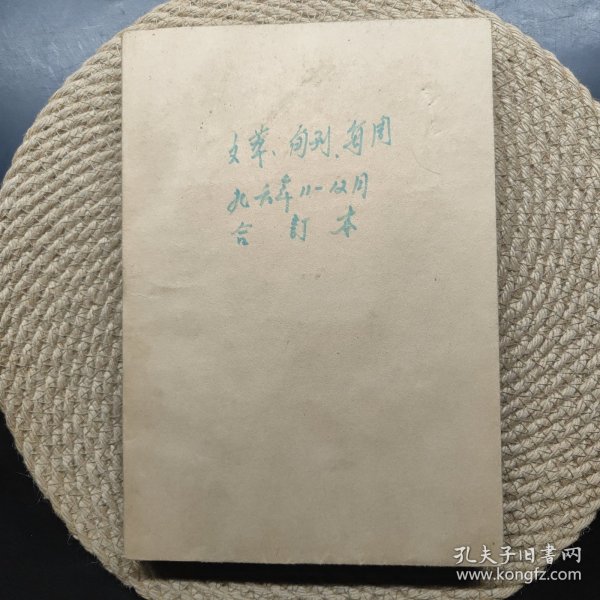 文萃、旬刊、每周
九六年11-12月
合訂本
孔夫子旧书网
www.kongfz.com